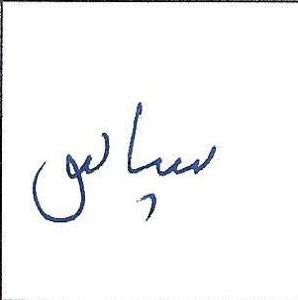 سپاس